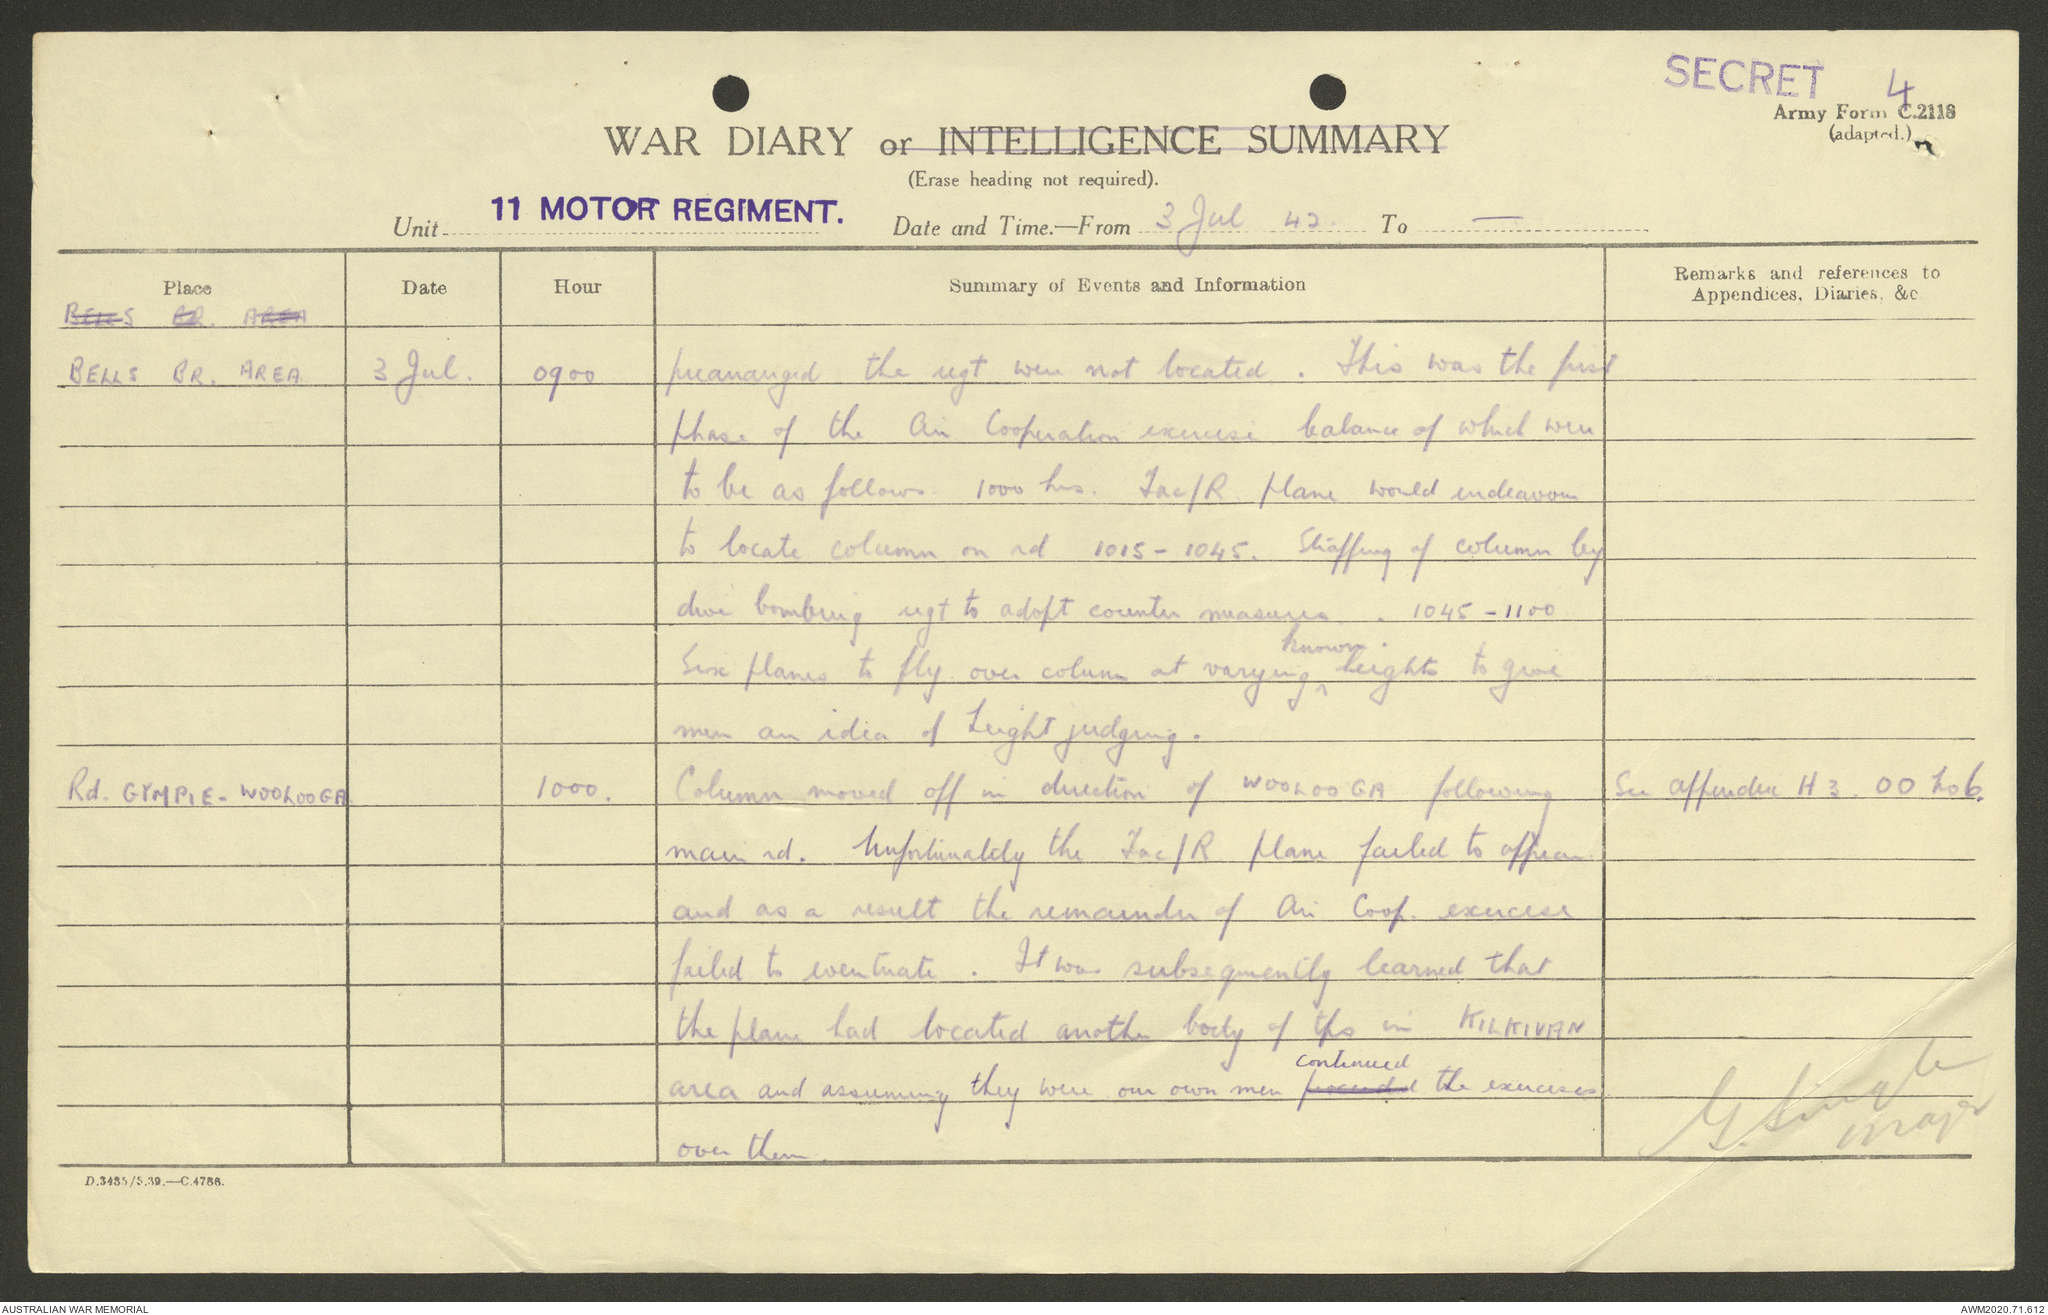 SECRET 4
Army Form C.2118
(adapted.)
WAR DIARY or INTELLIGENCE SUMMARY
(Erase heading not required).
Unit 11 MOTOR REGIMENT. Date and Time.—From 3 Jul 42. To —
Place Date Hour Summary of Events and Information Remarks and references to Appendices, Diaries, &c
BELLS BR. AREA
BELLS BR. AREA 3 Jul. 0900 prearranged the regt were not located. This was the first
phase of the Air Cooperation exercise balance of which were
to be as follows. 1000 hrs. Tac/R plane would endeavour
to locate column on rd 1015 - 1045. Straffing of column by
dive bombing regt to adopt counter measures. 1045 - 1100
Six planes to fly over column at varying known heights to give
men an idea of height judging.
Rd. GYMPIE - WOOLOOGA 1000. Column moved off in direction of WOOLOOGA following See appendix H 3. OO No 6.
main rd. Unfortunately the Tac/R plane failed to appear
and as a result the remainder of Air Coop. exercise
failed to eventuate. It was subsequently learned that
the plane had located another body of tps in KILKIVAN
area and assuming they were our own men proceeded continued the exercises
over them.
Major
D.3485/5.39.—C.4786.
AUSTRALIAN WAR MEMORIAL AWM2020.71.612